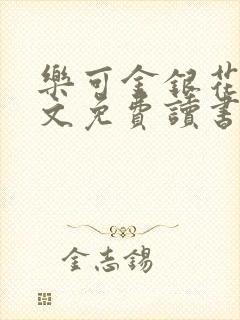 樂可金銀花
文免費讀書
金志錫